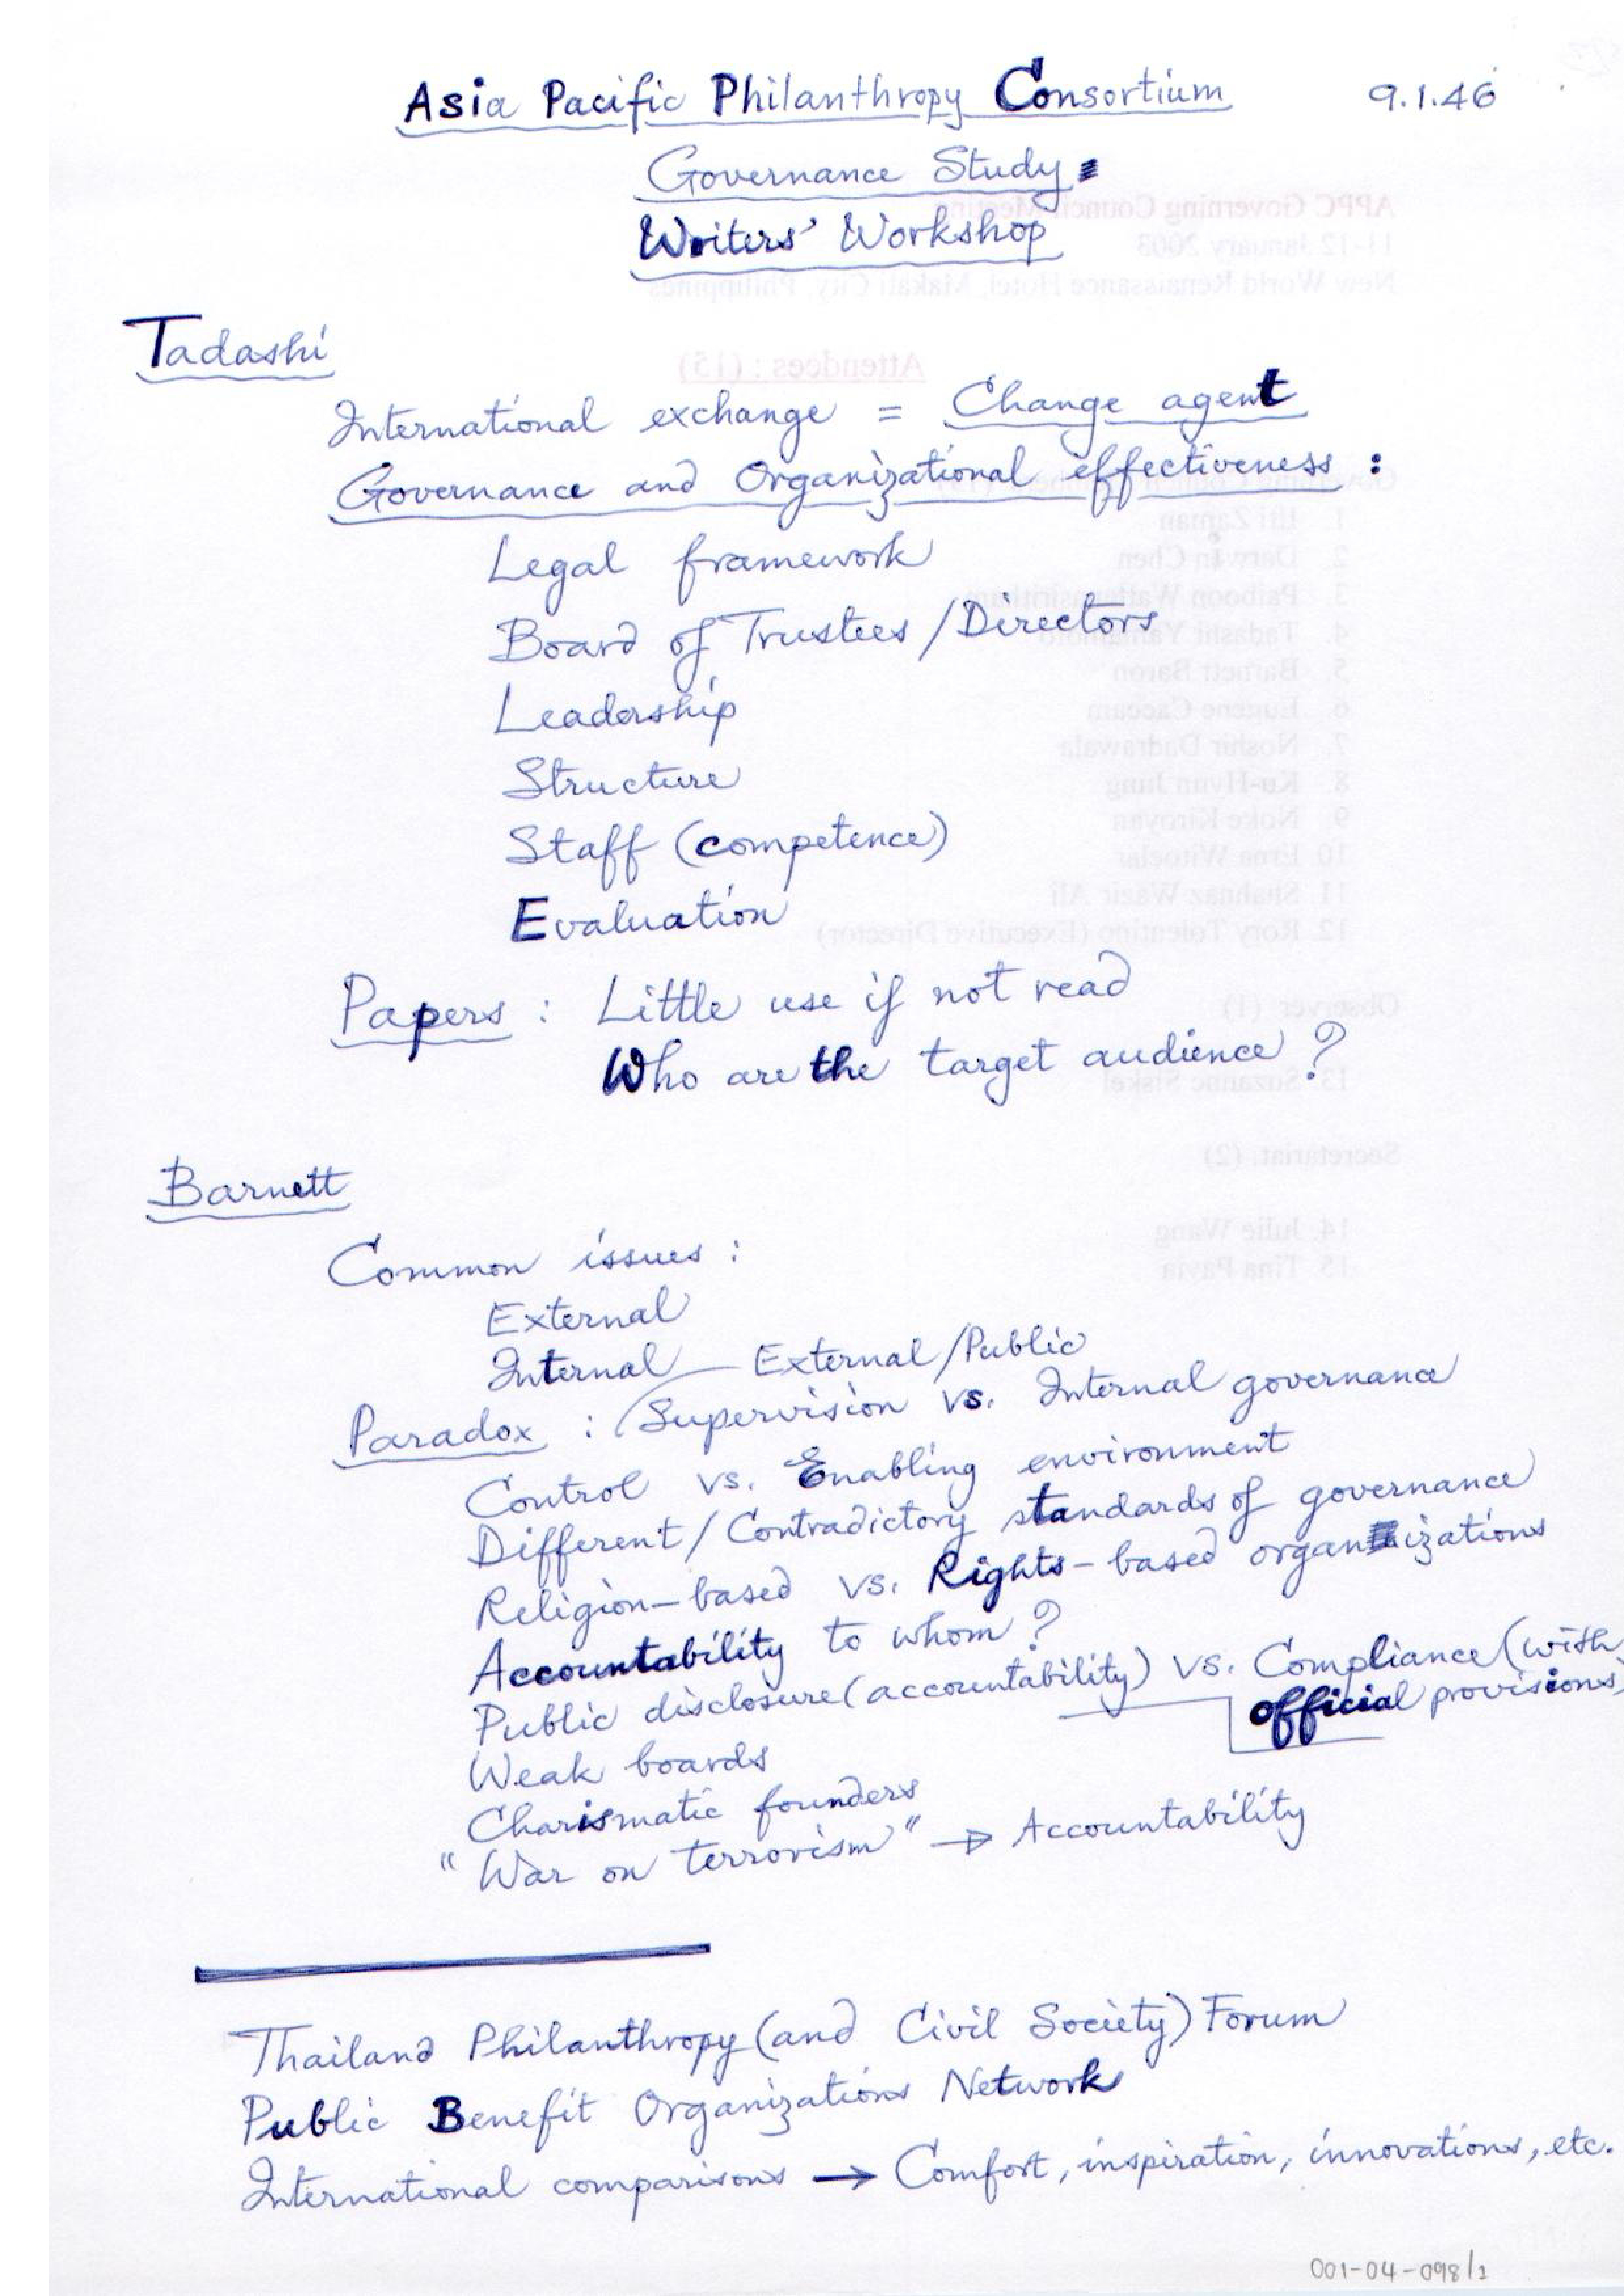 Asia Pacific Philanthropy Consortium 9.1.46
Governance Study
Writers' Workshop
Tadashi
International exchange = Change agent
Governance and Organizational effectiveness :
Legal framework
Board of Trustees / Directors
Leadership
Structure
Staff (competence)
Evaluation
Papers : Little use if not read
Who are the target audience ?
Barnett
Common issues :
External
Internal External / Public
Paradox : Supervision vs. Internal governance
Control vs. Enabling environment
Different / Contradictory standards of governance
Religion-based vs. Rights-based organizations
Accountability to whom ?
Public disclosure (accountability) vs. Compliance (with
official provisions)
Weak boards
Charismatic founders
"War on terrorism" → Accountability
Thailand Philanthropy (and Civil Society) Forum
Public Benefit Organizations Network
International comparisons → Comfort, inspiration, innovations, etc.
001-04-098/1